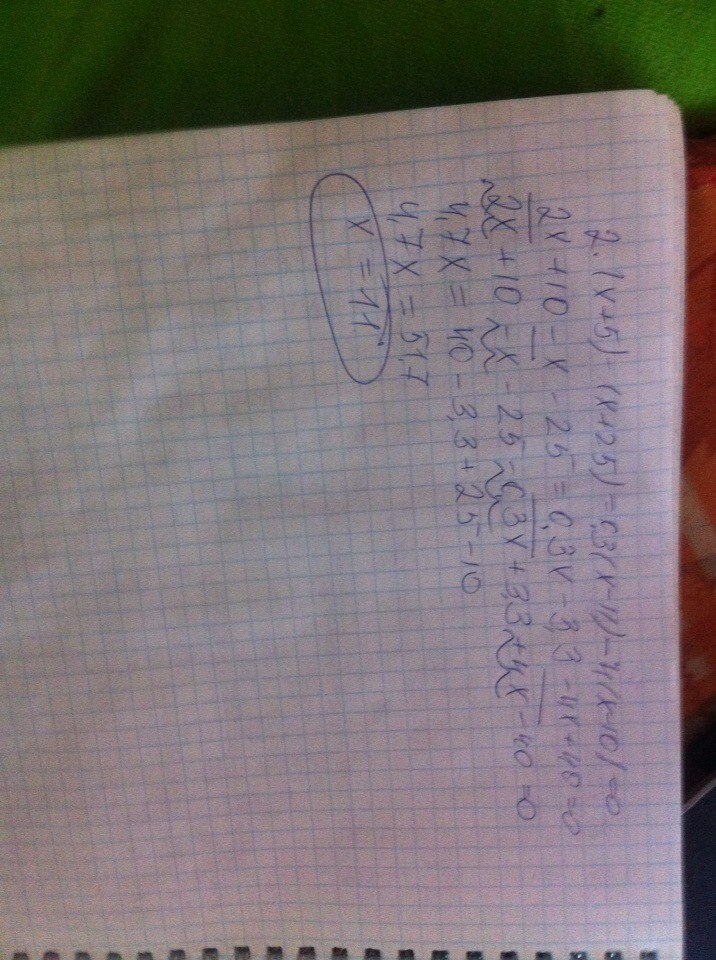 2. (x+5) - (x+25) = 0,3(x-11) - 4(x-10) = 0
2x + 10 - x - 25 = 0,3x - 3,3 - 4x + 40 = 0
2x + 10 - x - 25 - 0,3x + 3,3 + 4x - 40 = 0
4,7x = 40 - 3,3 + 25 - 10
4,7x = 51,7
x = 11